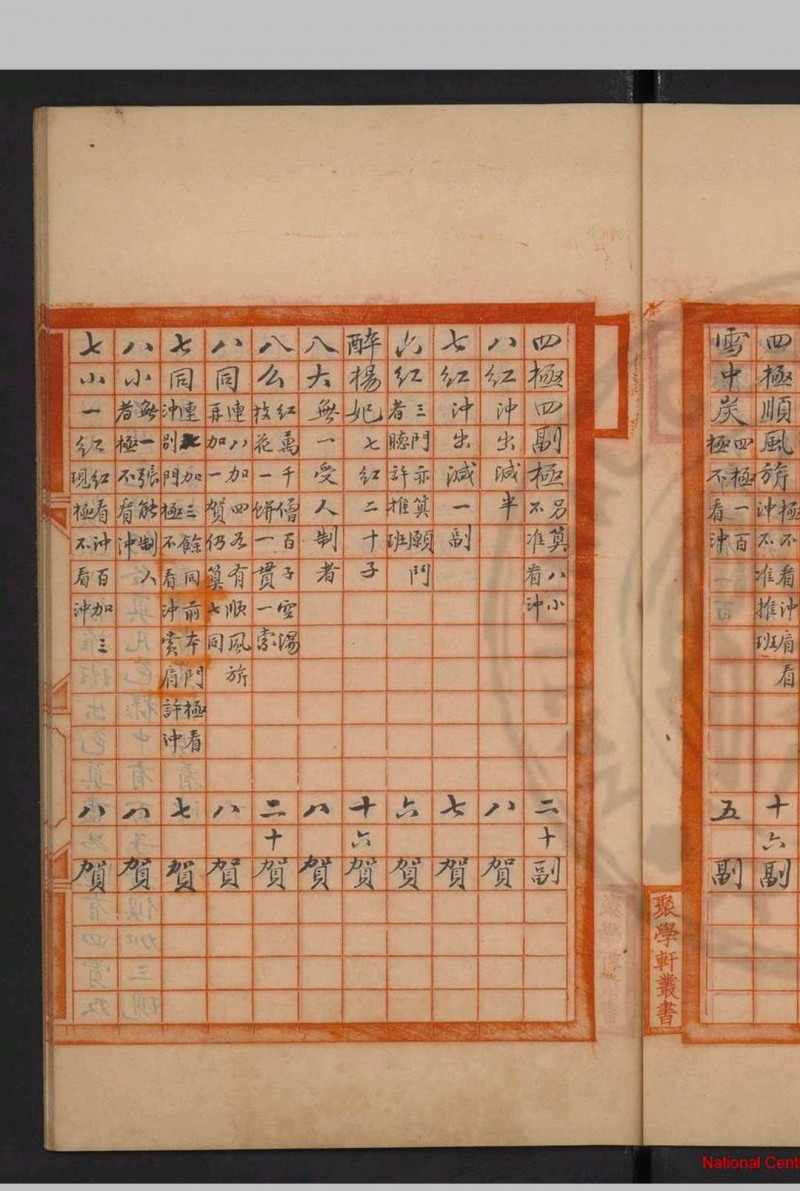 四極順風旂 極不看沖肩看 沖不准推班 十六副
雪中炭 四極一百 極不看沖 五副
聚學軒叢書
四極四副極 另算八小 不准看沖 二十副
八紅沖出減半 八賀
七紅沖出減一副 七賀
六紅 三門亦算願門 者聽許推班 六賀
醉楊妃 七紅二十子 十六賀
八大 無一受人制者 八賀
八么 紅萬千僧百子空湯 枝花一餅一貫一索 二十賀
八同 連八加四各有順風旂 再加一賀仍算七同 八賀
七同 連加三餘同前本門極看 沖別門極不看沖賞肩許沖 七賀
八小 無一張能制人 者極不看沖 八賀
七小一紅 紅看沖百加三 現極不看沖 八賀
National Cent